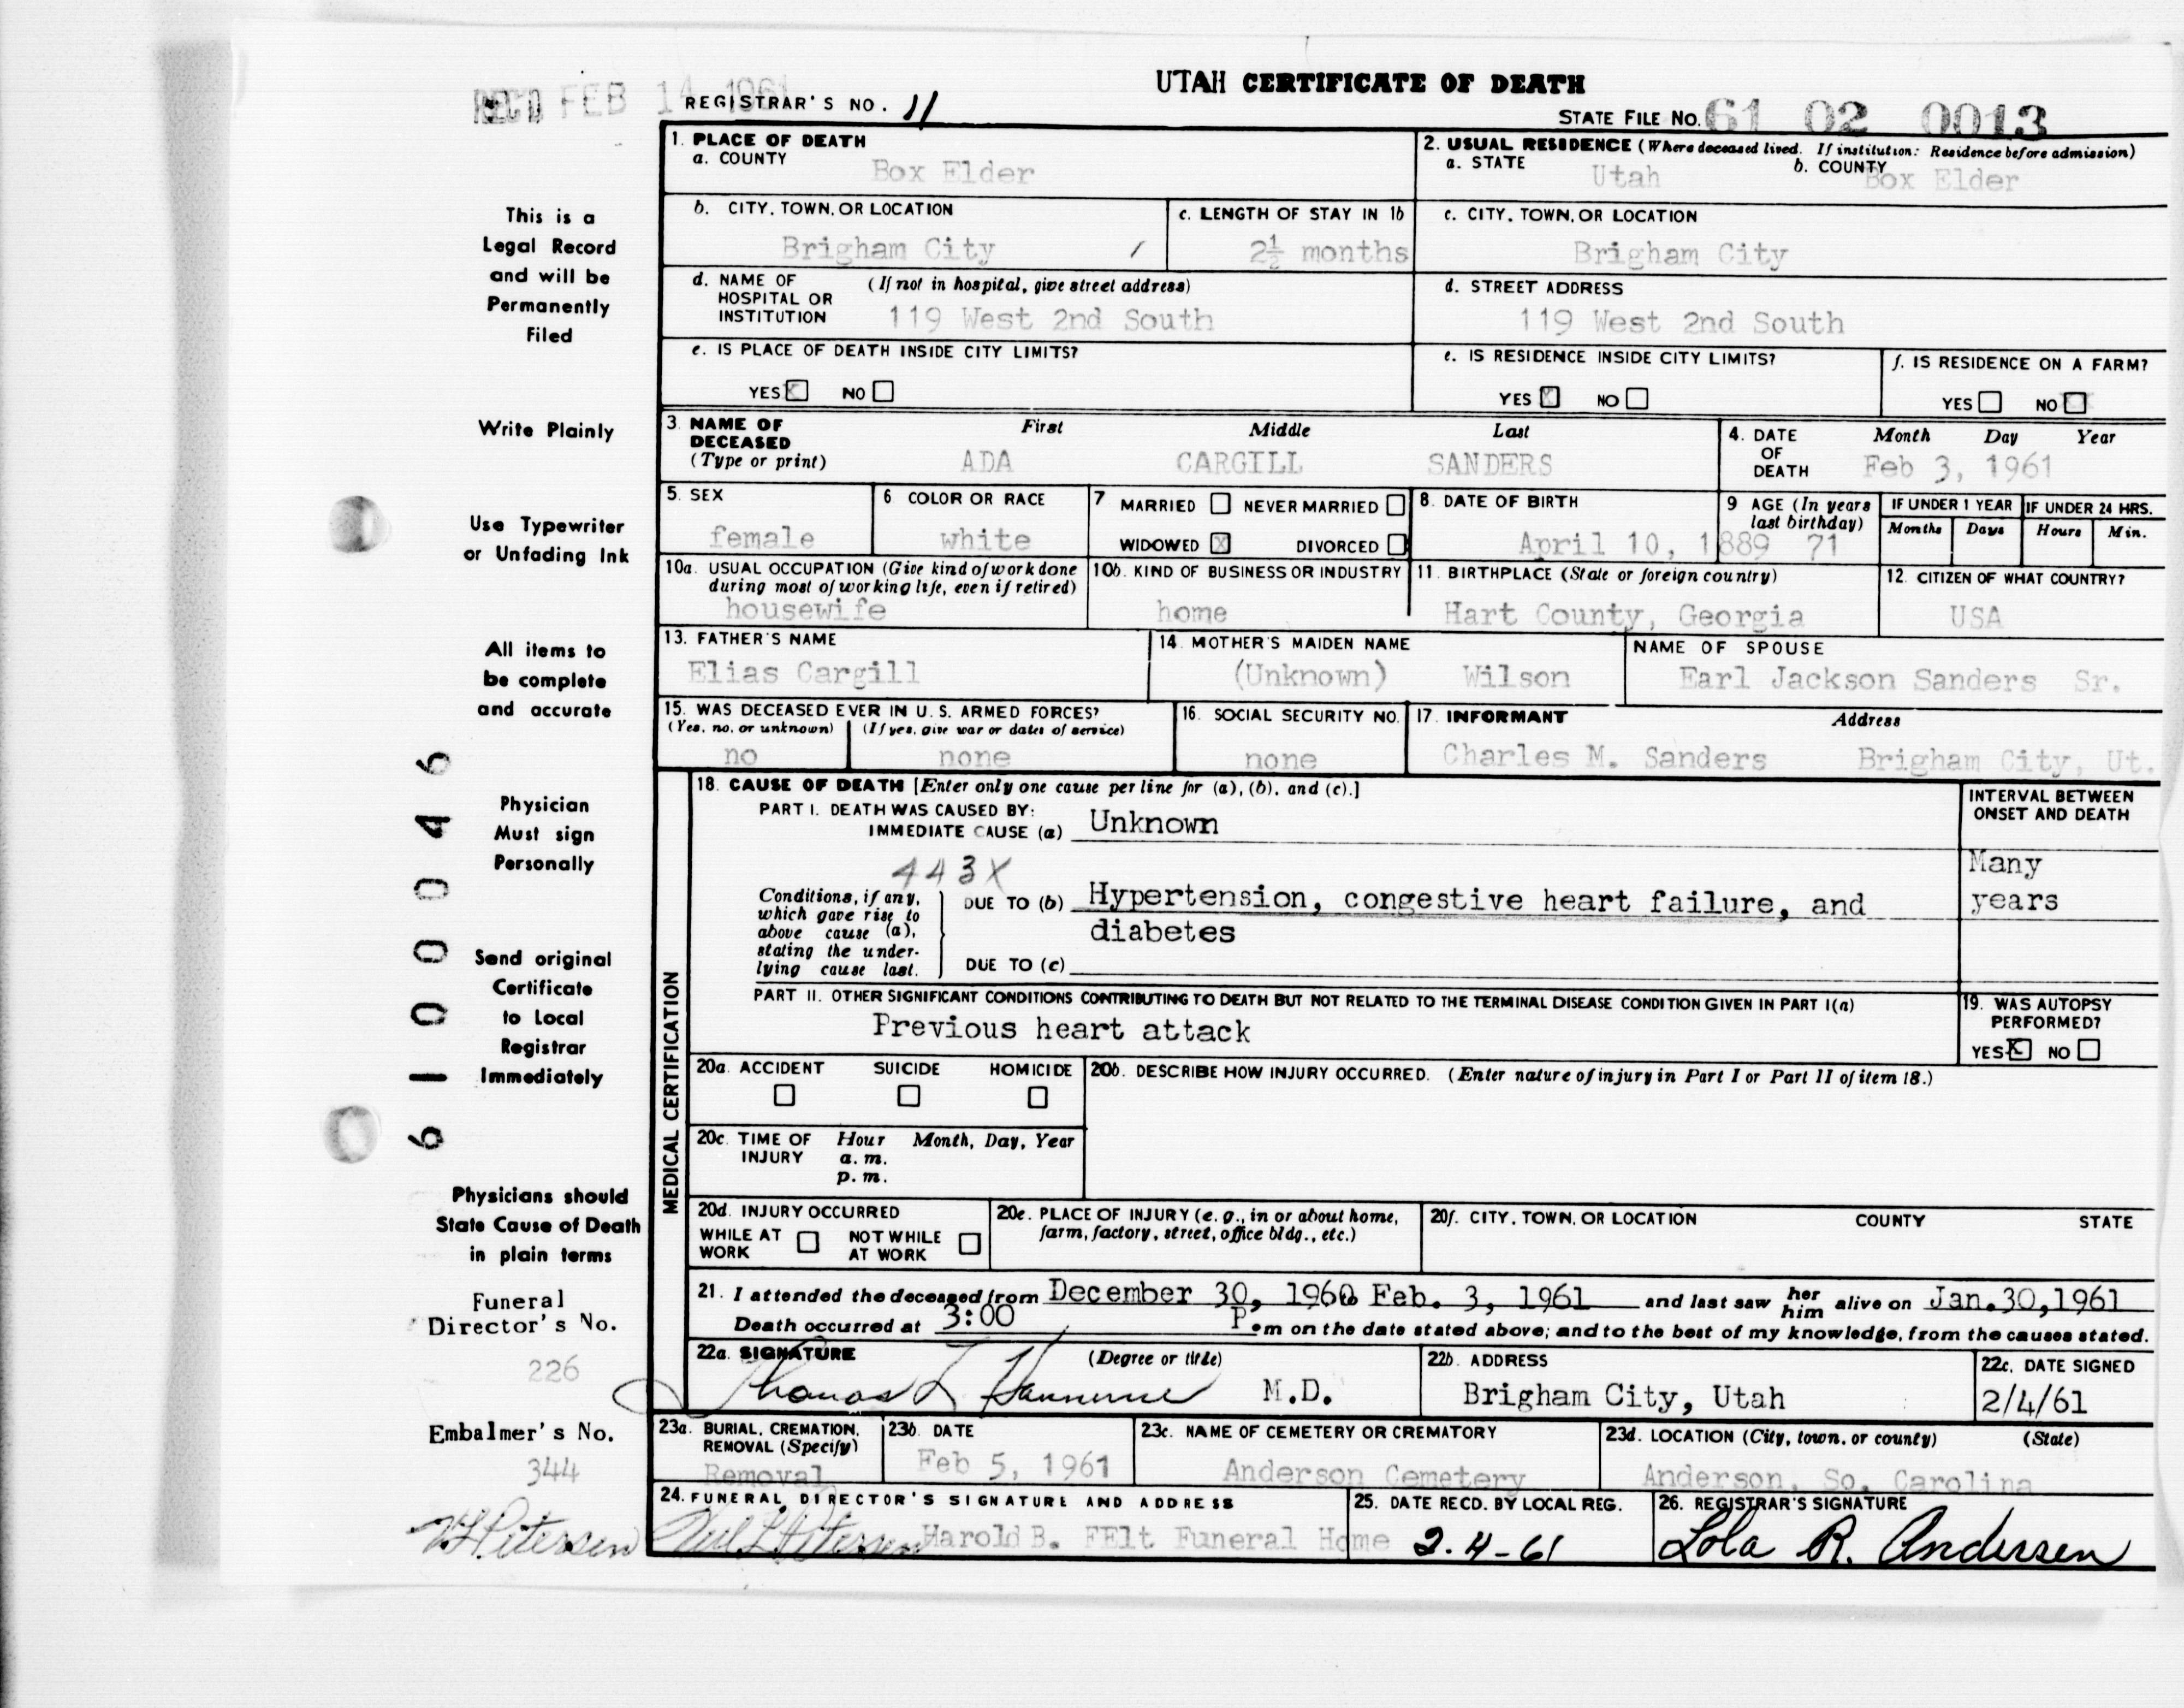 REC'D FEB 14 1961
UTAH CERTIFICATE OF DEATH
REGISTRAR'S NO. 11
STATE FILE NO. 61 02 0013
1. PLACE OF DEATH
a. COUNTY
Box Elder
2. USUAL RESIDENCE (Where deceased lived. If institution: Residence before admission)
a. STATE Utah b. COUNTY Box Elder
b. CITY, TOWN, OR LOCATION
Brigham City /
c. LENGTH OF STAY IN 1b
2½ months
c. CITY, TOWN, OR LOCATION
Brigham City
d. NAME OF HOSPITAL OR INSTITUTION (If not in hospital, give street address)
119 West 2nd South
d. STREET ADDRESS
119 West 2nd South
e. IS PLACE OF DEATH INSIDE CITY LIMITS?
YES X NO
e. IS RESIDENCE INSIDE CITY LIMITS?
YES X NO
f. IS RESIDENCE ON A FARM?
YES NO X
3. NAME OF DECEASED (Type or print)
First Middle Last
ADA CARGILL SANDERS
4. DATE OF DEATH Month Day Year
Feb 3, 1961
5. SEX
female
6 COLOR OR RACE
white
7 MARRIED NEVER MARRIED
WIDOWED X DIVORCED
8. DATE OF BIRTH
April 10, 1889
9 AGE (In years last birthday)
71
IF UNDER 1 YEAR
Months Days
IF UNDER 24 HRS.
Hours Min.
10a. USUAL OCCUPATION (Give kind of work done during most of working life, even if retired)
housewife
10b. KIND OF BUSINESS OR INDUSTRY
home
11. BIRTHPLACE (State or foreign country)
Hart County, Georgia
12. CITIZEN OF WHAT COUNTRY?
USA
13. FATHER'S NAME
Elias Cargill
14. MOTHER'S MAIDEN NAME
(Unknown) Wilson
NAME OF SPOUSE
Earl Jackson Sanders Sr.
15. WAS DECEASED EVER IN U. S. ARMED FORCES?
(Yes, no, or unknown) (If yes, give war or dates of service)
no none
16. SOCIAL SECURITY NO.
none
17. INFORMANT Address
Charles M. Sanders Brigham City, Ut.
MEDICAL CERTIFICATION
18. CAUSE OF DEATH [Enter only one cause per line for (a), (b), and (c).]
PART I. DEATH WAS CAUSED BY:
IMMEDIATE CAUSE (a) Unknown
INTERVAL BETWEEN
ONSET AND DEATH
Many
years
443X
Conditions, if any,
which gave rise to
above cause (a),
stating the under-
lying cause last.
DUE TO (b) Hypertension, congestive heart failure, and
diabetes
DUE TO (c)
PART II. OTHER SIGNIFICANT CONDITIONS CONTRIBUTING TO DEATH BUT NOT RELATED TO THE TERMINAL DISEASE CONDITION GIVEN IN PART I(a)
Previous heart attack
19. WAS AUTOPSY
PERFORMED?
YES X NO
20a. ACCIDENT SUICIDE HOMICIDE
20b. DESCRIBE HOW INJURY OCCURRED. (Enter nature of injury in Part I or Part II of item 18.)
20c. TIME OF INJURY Hour Month, Day, Year
a. m.
p. m.
20d. INJURY OCCURRED
WHILE AT WORK NOT WHILE AT WORK
20e. PLACE OF INJURY (e. g., in or about home,
farm, factory, street, office bldg., etc.)
20f. CITY, TOWN, OR LOCATION COUNTY STATE
21. I attended the deceased from December 30, 1960 to Feb. 3, 1961 and last saw her him alive on Jan.30,1961
Death occurred at 3:00 P. m on the date stated above; and to the best of my knowledge, from the causes stated.
22a. SIGNATURE (Degree or title)
Thomas M.D.
22b. ADDRESS
Brigham City, Utah
22c. DATE SIGNED
2/4/61
23a. BURIAL, CREMATION,
REMOVAL (Specify)
Removal
23b. DATE
Feb 5, 1961
23c. NAME OF CEMETERY OR CREMATORY
Anderson Cemetery
23d. LOCATION (City, town, or county) (State)
Anderson, So. Carolina
24. FUNERAL DIRECTOR'S SIGNATURE AND ADDRESS
Petersen Harold B. FElt Funeral Home
25. DATE RECD. BY LOCAL REG.
2-4-61
26. REGISTRAR'S SIGNATURE
Lola R. Andersen
This is a
Legal Record
and will be
Permanently
Filed
Write Plainly
Use Typewriter
or Unfading Ink
All items to
be complete
and accurate
Physician
Must sign
Personally
Send original
Certificate
to Local
Registrar
Immediately
Physicians should
State Cause of Death
in plain terms
Funeral
Director's No.
226
Embalmer's No.
344
Petersen
6 1 0 0 0 4 6